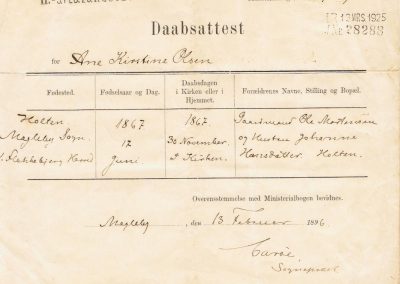 12 MRS. 1925
28288
Daabsattest
for Ane Kirstine Olsen
Fødested. Fødselsaar og Dag. Daabsdagen i Kirken eller i Hjemmet. Forældrenes Navne, Stilling og Bopæl.
Holten 1867 1867. Gaardmand Ole Mortensen
Magleby Sogn. 17 30 November. og Hustru Johanne
Flakkebjerg Herred Juni I Kirken. Hansdatter Holten.
Overensstemmelse med Ministerialbogen bevidnes.
Magleby, den 13 Februar 1896
Sognepræst